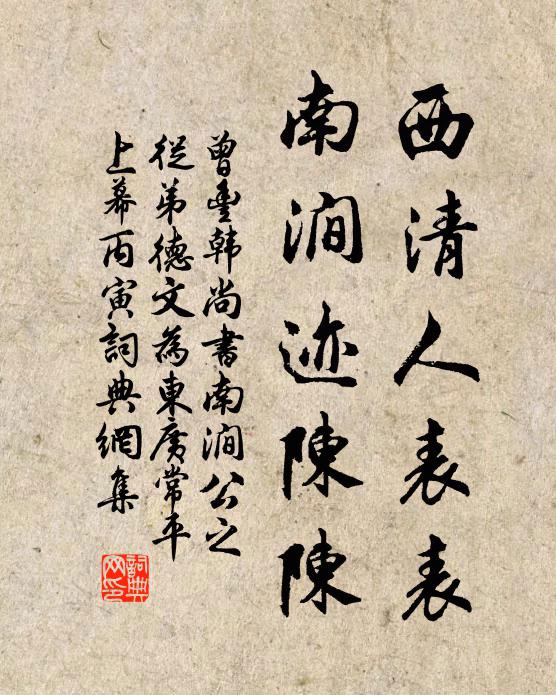 西清人表表
南澗迹陳陳
曾豊韓尚書南澗公之
從弟德文為東廣常平
上幕丙寅詞典網集
詞典
网印